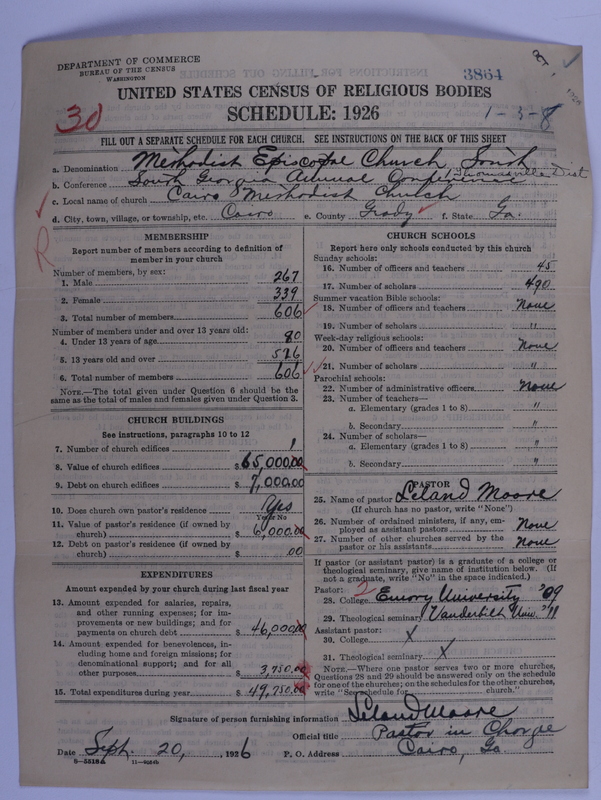 DEPARTMENT OF COMMERCE
BUREAU OF THE CENSUS
WASHINGTON
3864
UNITED STATES CENSUS OF RELIGIOUS BODIES
30
SCHEDULE: 1926
1-3-8
FILL OUT A SEPARATE SCHEDULE FOR EACH CHURCH. SEE INSTRUCTIONS ON THE BACK OF THIS SHEET
a. Denomination Methodist Episcopal Church, South
b. Conference South Georgia Annual Conference Thomasville Dist
c. Local name of church Cairo Methodist Church
d. City, town, village, or township, etc. Cairo e. County Grady f. State Ga.
R
MEMBERSHIP
Report number of members according to definition of
member in your church
Number of members, by sex:
1. Male 267
2. Female 339
3. Total number of members 606
Number of members under and over 13 years old:
4. Under 13 years of age 80
5. 13 years old and over 526
6. Total number of members 606
NOTE.—The total given under Question 6 should be the
same as the total of males and females given under Question 3.
CHURCH BUILDINGS
See instructions, paragraphs 10 to 12
7. Number of church edifices 1
8. Value of church edifices $65,000.00
9. Debt on church edifices $7,000.00
10. Does church own pastor's residence Yes
Yes or No
11. Value of pastor's residence (if owned by
church) $6,000.00
12. Debt on pastor's residence (if owned by
church) $.00
EXPENDITURES
Amount expended by your church during last fiscal year
13. Amount expended for salaries, repairs,
and other running expenses; for im-
provements or new buildings; and for
payments on church debt $46,000.00
14. Amount expended for benevolences, in-
cluding home and foreign missions; for
denominational support; and for all
other purposes $3,750.00
15. Total expenditures during year $49,750.00
CHURCH SCHOOLS
Report here only schools conducted by this church
Sunday schools:
16. Number of officers and teachers 45
17. Number of scholars 490
Summer vacation Bible schools:
18. Number of officers and teachers None
19. Number of scholars "
Week-day religious schools:
20. Number of officers and teachers None
21. Number of scholars "
Parochial schools:
22. Number of administrative officers None
23. Number of teachers—
a. Elementary (grades 1 to 8) "
b. Secondary "
24. Number of scholars—
a. Elementary (grades 1 to 8) "
b. Secondary "
PASTOR
25. Name of pastor Leland Moore
(If church has no pastor, write "None")
26. Number of ordained ministers, if any, em-
ployed as assistant pastors None
27. Number of other churches served by the
pastor or his assistants None
If pastor (or assistant pastor) is a graduate of a college or
theological seminary, give name of institution below. (If
not a graduate, write "No" in the space indicated.)
Pastor: 2
28. College Emory University '09
29. Theological seminary Vanderbilt Univ. '11
Assistant pastor:
30. College X
31. Theological seminary X
NOTE.—Where one pastor serves two or more churches,
Questions 28 and 29 should be answered only on the schedule
for one of the churches; on the schedules for the other churches,
write "See schedule for church."
Signature of person furnishing information Leland Moore
Official title Pastor in Charge
Date Sept. 20, 1926 P. O. Address Cairo, Ga.